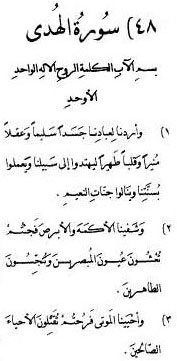 ٤٨) سورة الهدى
بسم الآب الكلمة الروح الإله الواحد
الأوحد
١) وأردنا لعبادنا جسدًا سليمًا وعقلًا
منيرًا وقلبًا طهرًا ليهتدوا إلى سبيلنا ويعملوا
بسنتنا وينالوا جنات النعيم.
٢) وشفينا الأكمه والأبرص فجئتم
تعشون عيون المبصرين وتنجسون
الطاهرين.
٣) وأحيينا الموتى فرحتم تقتلون الأحياء
الصالحين.